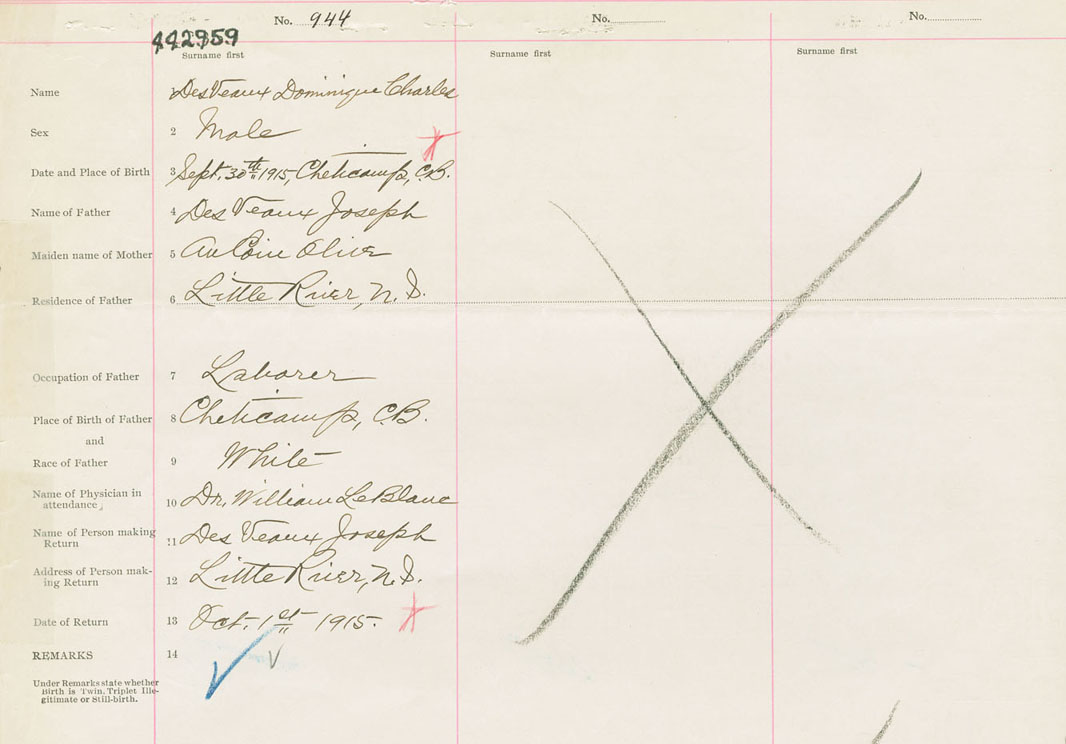 No. 944
No.
No.
442959
Surname first
Surname first
Surname first
Name 1 DesVeaux Dominique Charles
Sex 2 Male
Date and Place of Birth 3 Sept. 30th 1915, Cheticamp, C.B.
Name of Father 4 Des Veaux Joseph
Maiden name of Mother 5 AuCoin Olive
Residence of Father 6 Little River, N.S.
Occupation of Father 7 Laborer
Place of Birth of Father 8 Cheticamp, C.B.
and
Race of Father 9 White
Name of Physician in
attendance 10 Dr. William LeBlanc
Name of Person making 11 Des Veaux Joseph
Return
Address of Person mak-
ing Return 12 Little River, N.S.
Date of Return 13 Oct. 1st 1915.
REMARKS 14
Under Remarks state whether
Birth is Twin, Triplet Ille-
gitimate or Still-birth.